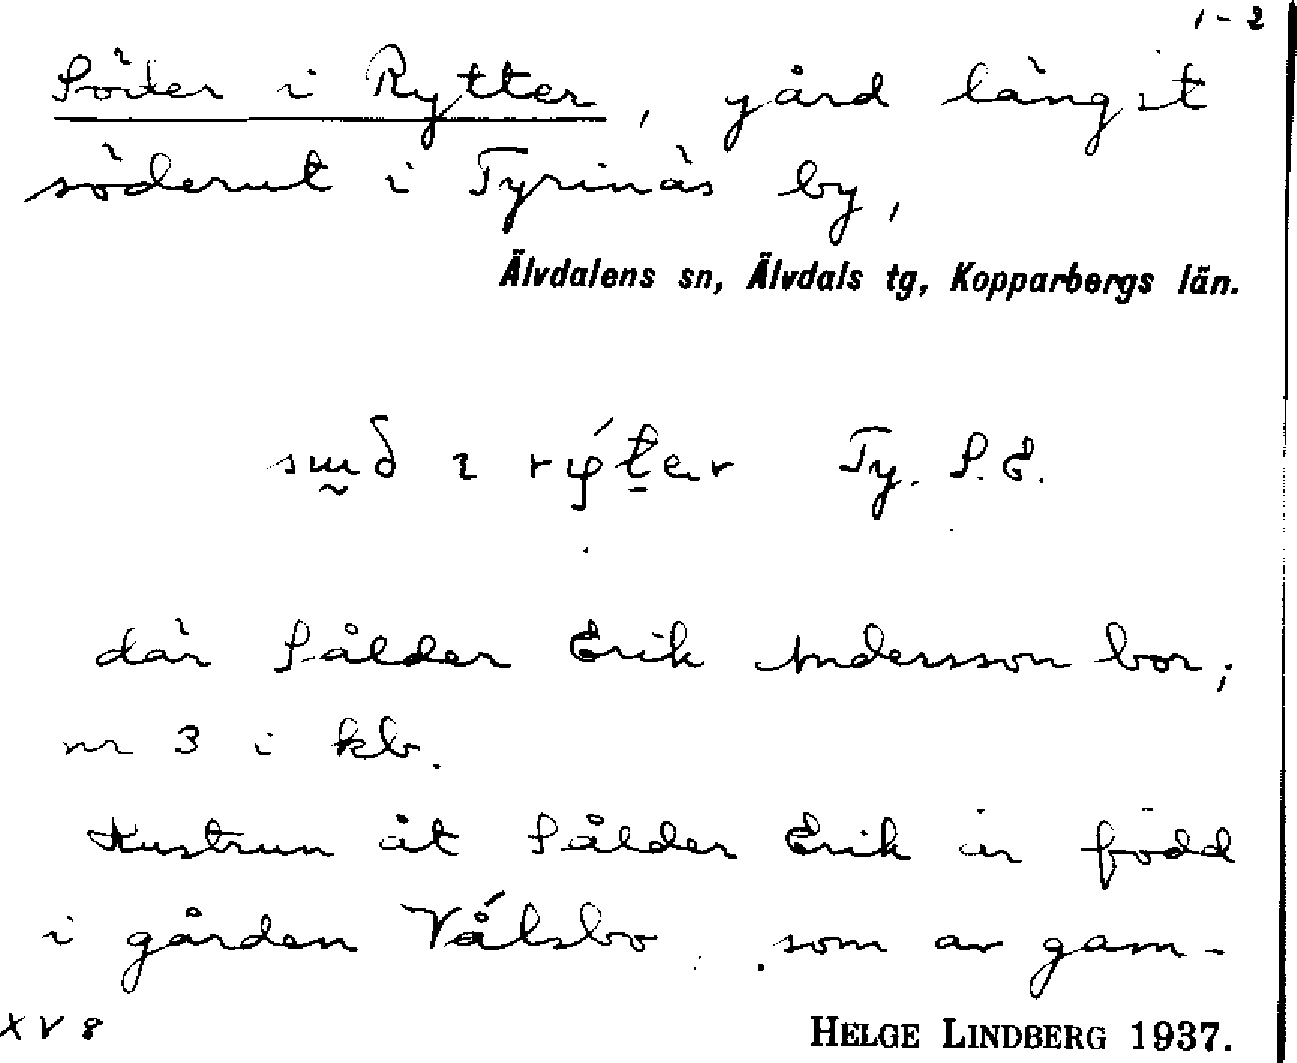 1-2
Söder i Rytter, gård längst
söderut i Tyrinäs by,
Älvdalens sn, Älvdals tg, Kopparbergs län.
Ty. S.E.
där Sålder Erik Andersson bor;
nr 3 i kb.
Hustrun åt Sålder Erik är född
i gården Vålsbo som av gam-
XV 8
HELGE LINDBERG 1937.